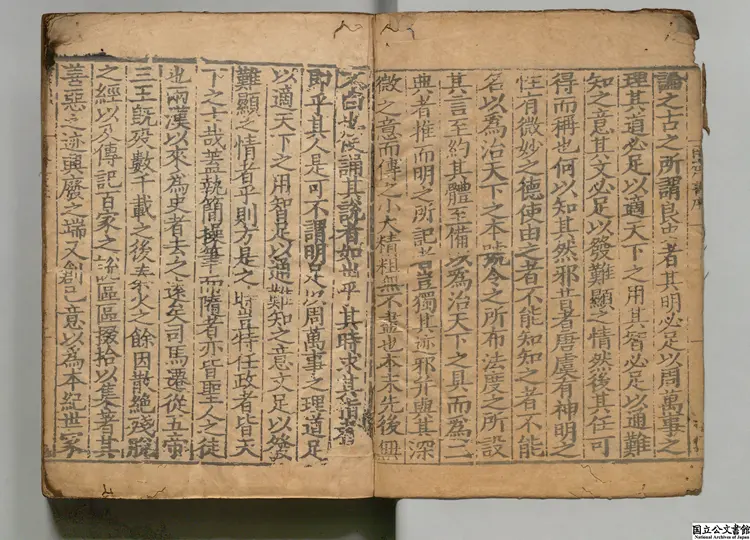 論之古之所謂良史者其明必足以周萬事之
理其道必足以適天下之用其智必足以通難
知之意其文必足以發難顯之情然後其任可
得而稱也何以知其然邪昔者唐虞有神明之
性有微妙之德使由之者不能知知之者不能
名以為治天下之本號令之所布法度之所設
其言至約其體至備以為治天下之具而為二
典者推而明之所記者豈獨其迹邪并與其深
微之意而傳之小大精粗無不盡也本末先後無
不白也使誦其說者如出乎其時求其旨者如
即乎其人是可不謂明足以周萬事之理道足
以適天下之用智足以通難知之意文足以發
難顯之情者乎則方是之時豈特任政者皆天
下之士哉蓋執簡操筆而隨者亦皆聖人之徒
也兩漢以來為史者去之遠矣司馬遷從五帝
三王既歿數千載之後秦火之餘因散絕殘脫
之經以及傳記百家之說區區掇拾以集著其
善惡之迹興廢之端又創己意以為本紀世家
国立公文書館
National Archives of Japan